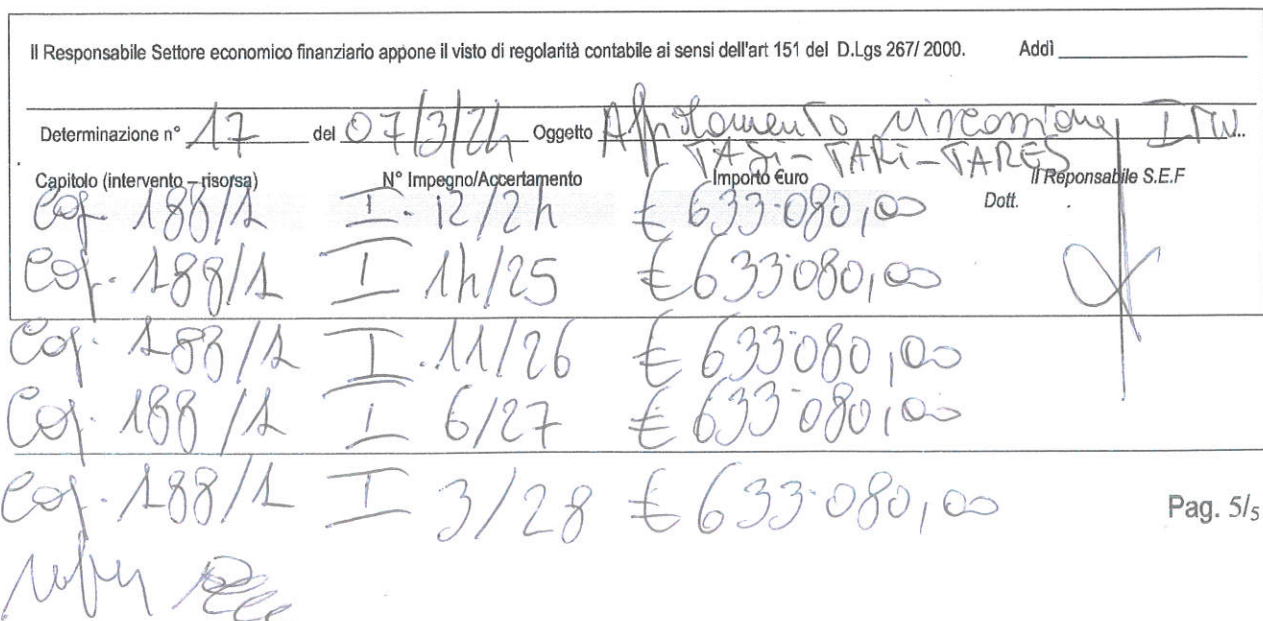 Il Responsabile Settore economico finanziario appone il visto di regolarità contabile ai sensi dell'art 151 del D.Lgs 267/ 2000. Addì
Determinazione n° 17 del 07/3/24 Oggetto Affidamento riscossione IMU..
TASI - TARI - TARES
Capitolo (intervento – risorsa) N° Impegno/Accertamento Importo €uro Il Reponsabile S.E.F
Dott.
Cap. 188/1 I. 12/24 € 633.080,00
Cap. 188/1 I 14/25 € 633.080,00
Cap. 188/1 I. 11/26 € 633.080,00
Cap. 188/1 I 6/27 € 633.080,00
Cap. 188/1 I 3/28 € 633.080,00
Pag. 5/5